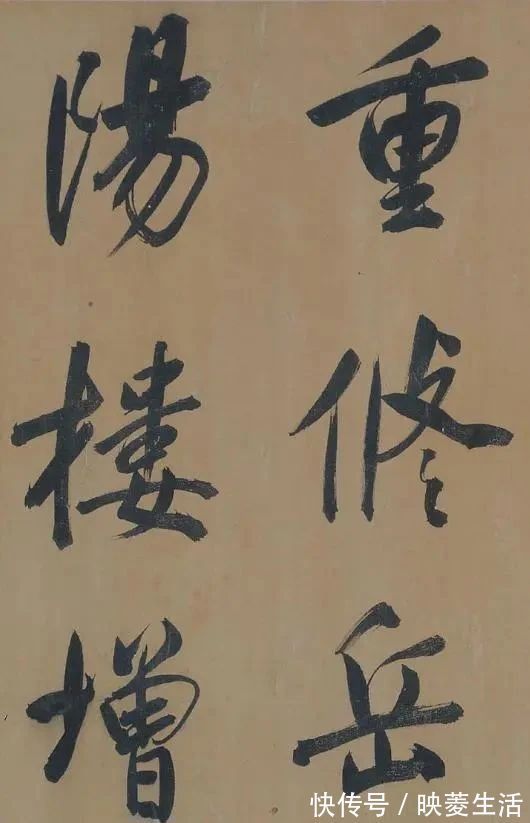 重修岳
陽樓增
快传号/映菱生活